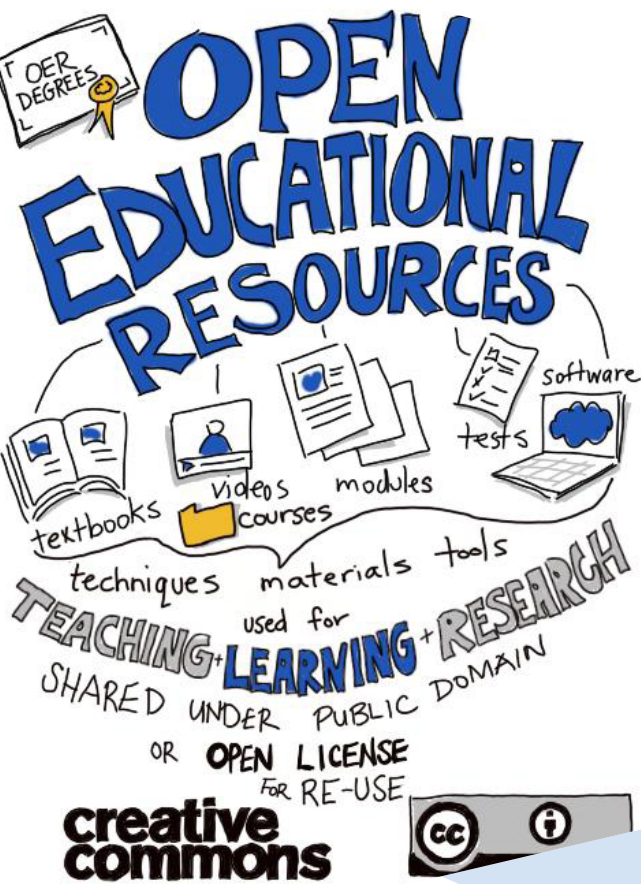 OER
DEGREES
OPEN
EDUCATIONAL
RESOURCES
textbooks
videos
courses
modules
tests
software
techniques materials tools
used for
TEACHING + LEARNING + RESEARCH
SHARED UNDER PUBLIC DOMAIN
OR OPEN LICENSE
FOR RE-USE
creative
commons
cc